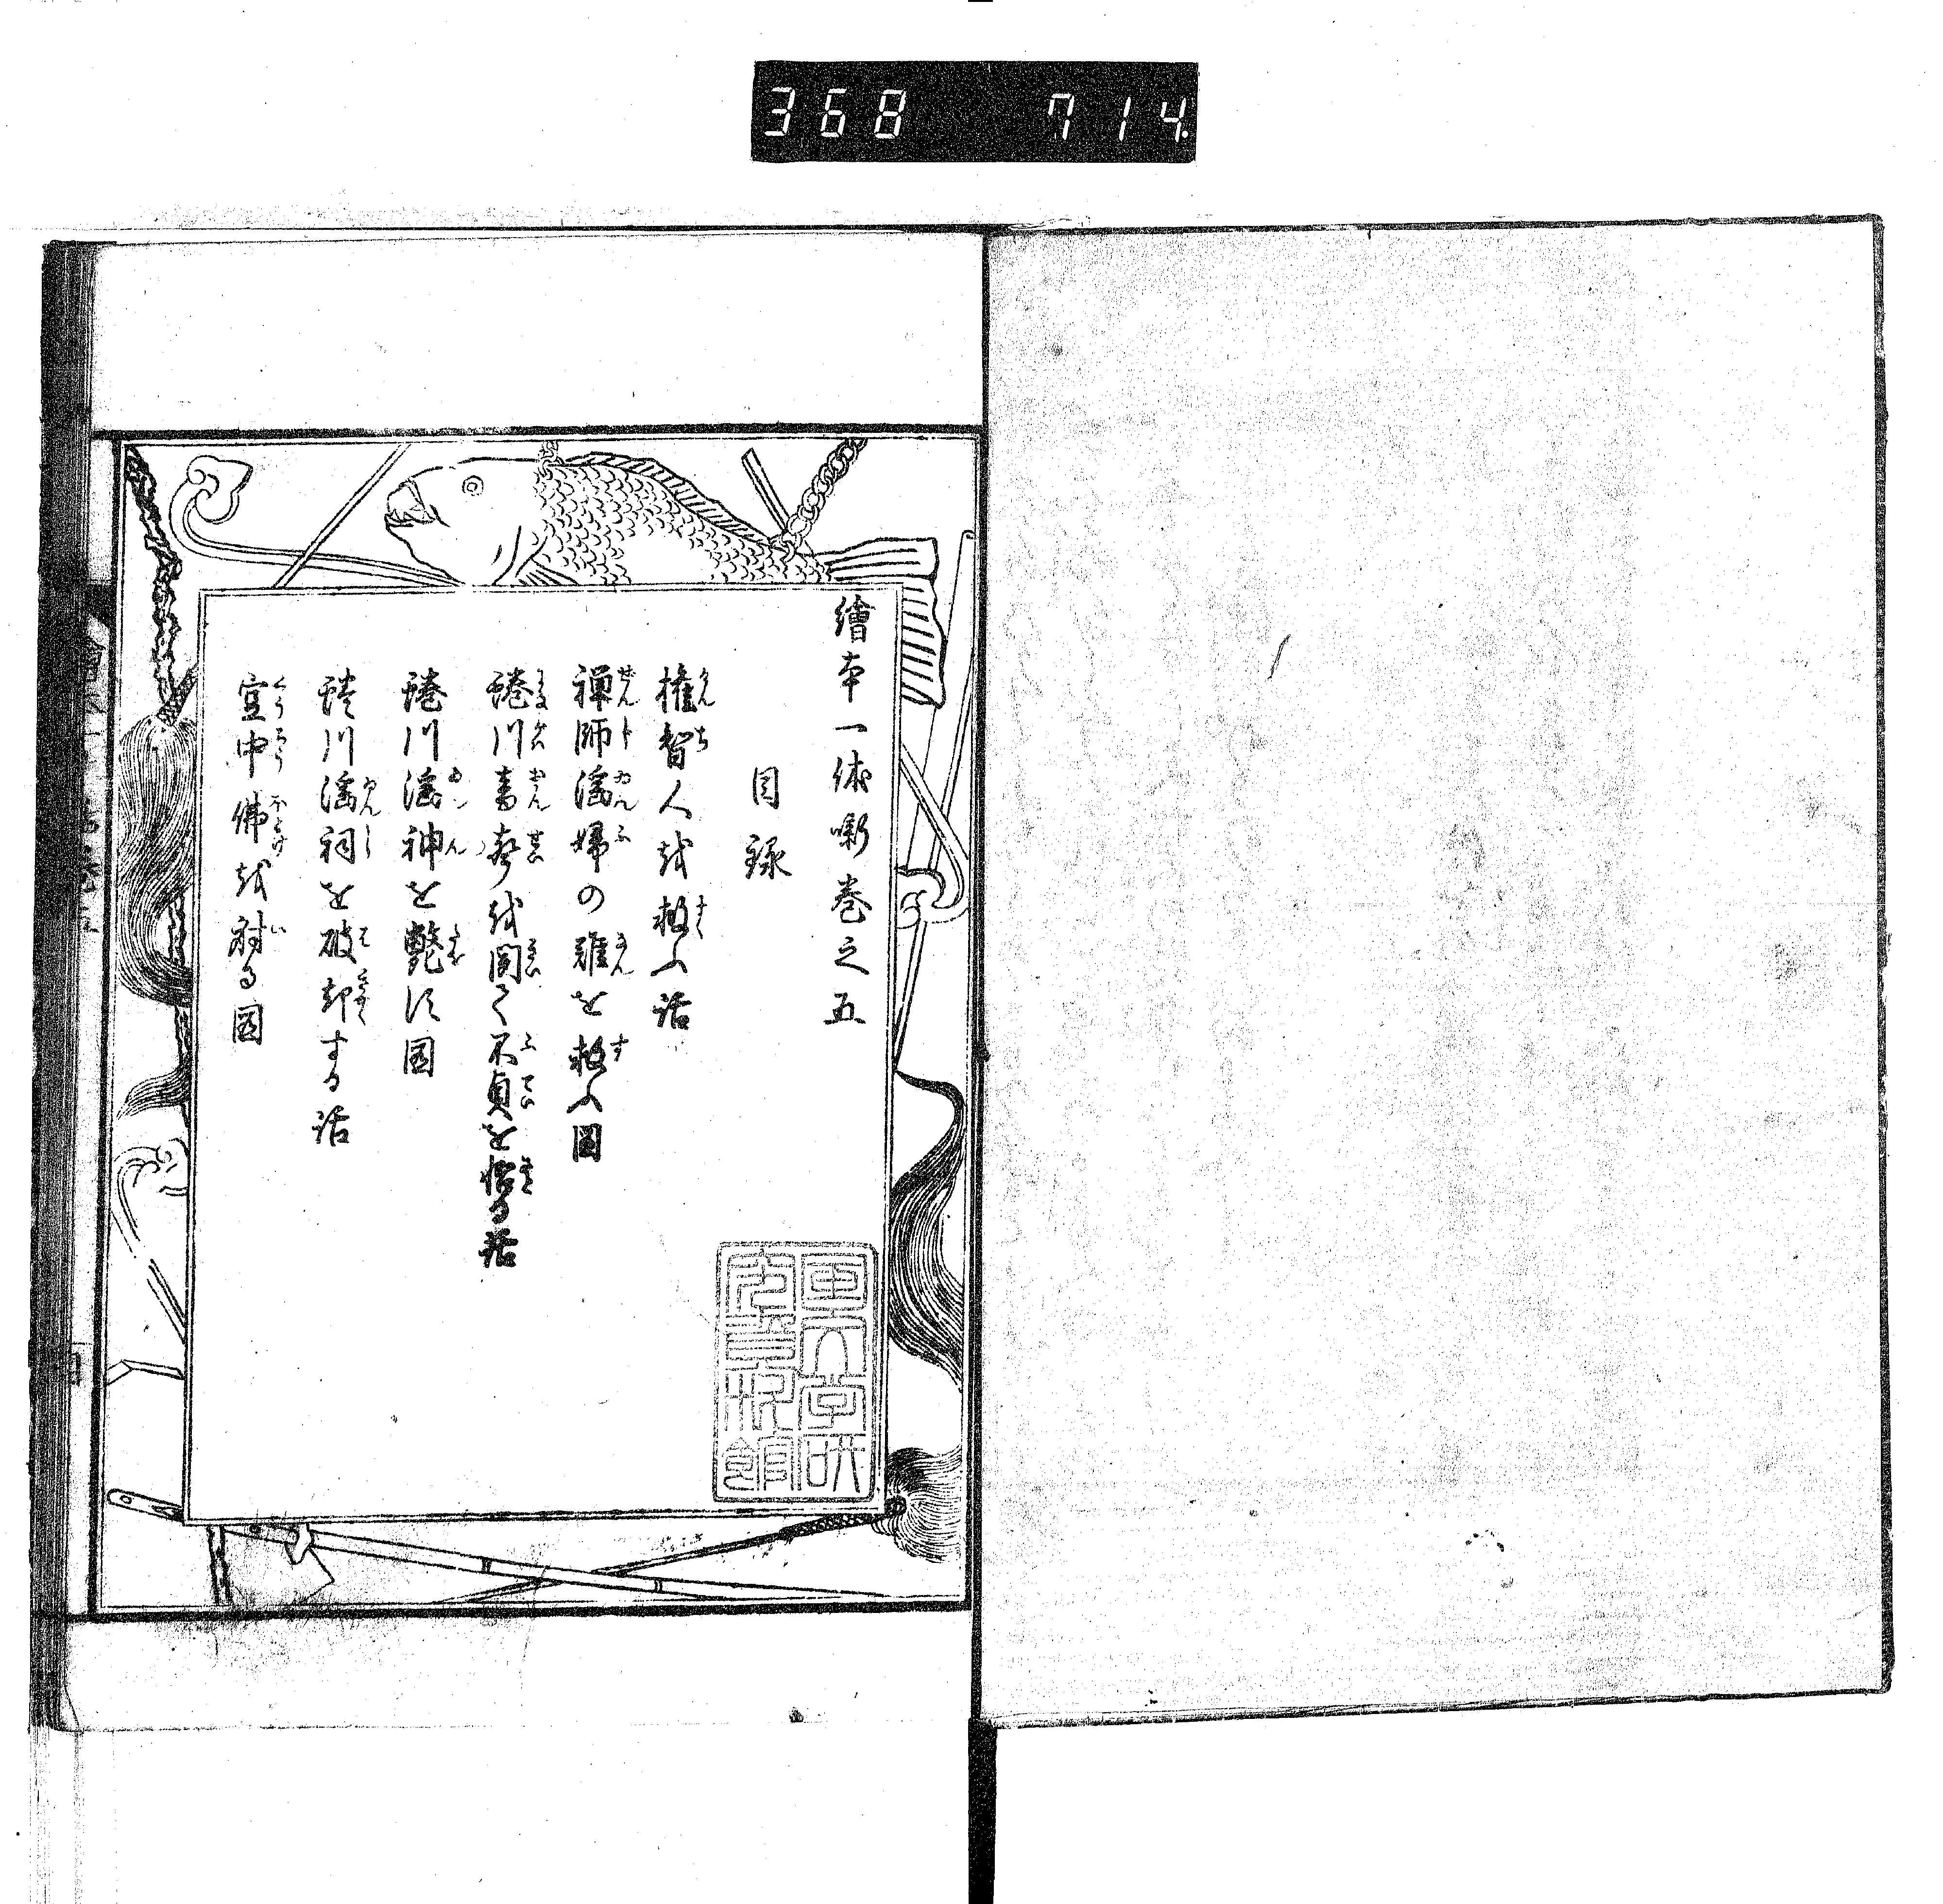 368 714
繪本一休噺巻之五
目録
権智人を救ふ話
禅師淫婦の難を救ふ図
蜷川音声を聞て不貞を悟る話
蜷川淫神を斃す図
蜷川淫祠を破却する話
空中佛を射る図